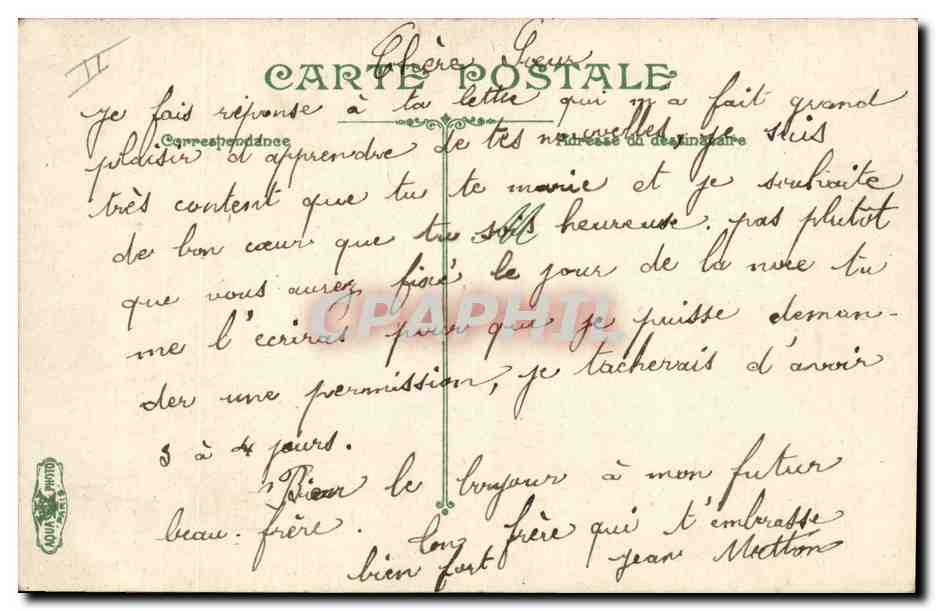 II
Chère Sœur
CARTE POSTALE
je fais réponse à ta lettre qui m'a fait grand
Correspondance
Adresse du destinataire
plaisir d'apprendre de tes nouvelles, je suis
très content que tu te marie et je souhaite
de bon cœur que tu sois heureuse. pas plutot
que vous aurez fixé le jour de la noce tu
me l'écriras pour que je puisse deman-
CPAPHIL
der une permission, je tacherais d'avoir
3 à 4 jours.
Bien le bonjour à mon futur
beau-frère.
Ton frère qui t'embrasse
bien fort Jean
AQUA PHOTO
PARIS